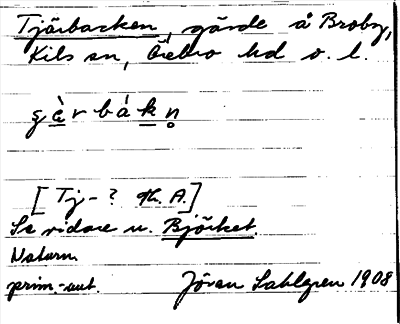 Tjärbacken, gärde å Broby,
Kils sn, Örebro hd o. l.
[Tj-? Th. A.]
Se vidare u. Björket.
Naturn.
prim.-aut. Jöran Sahlgren 1908